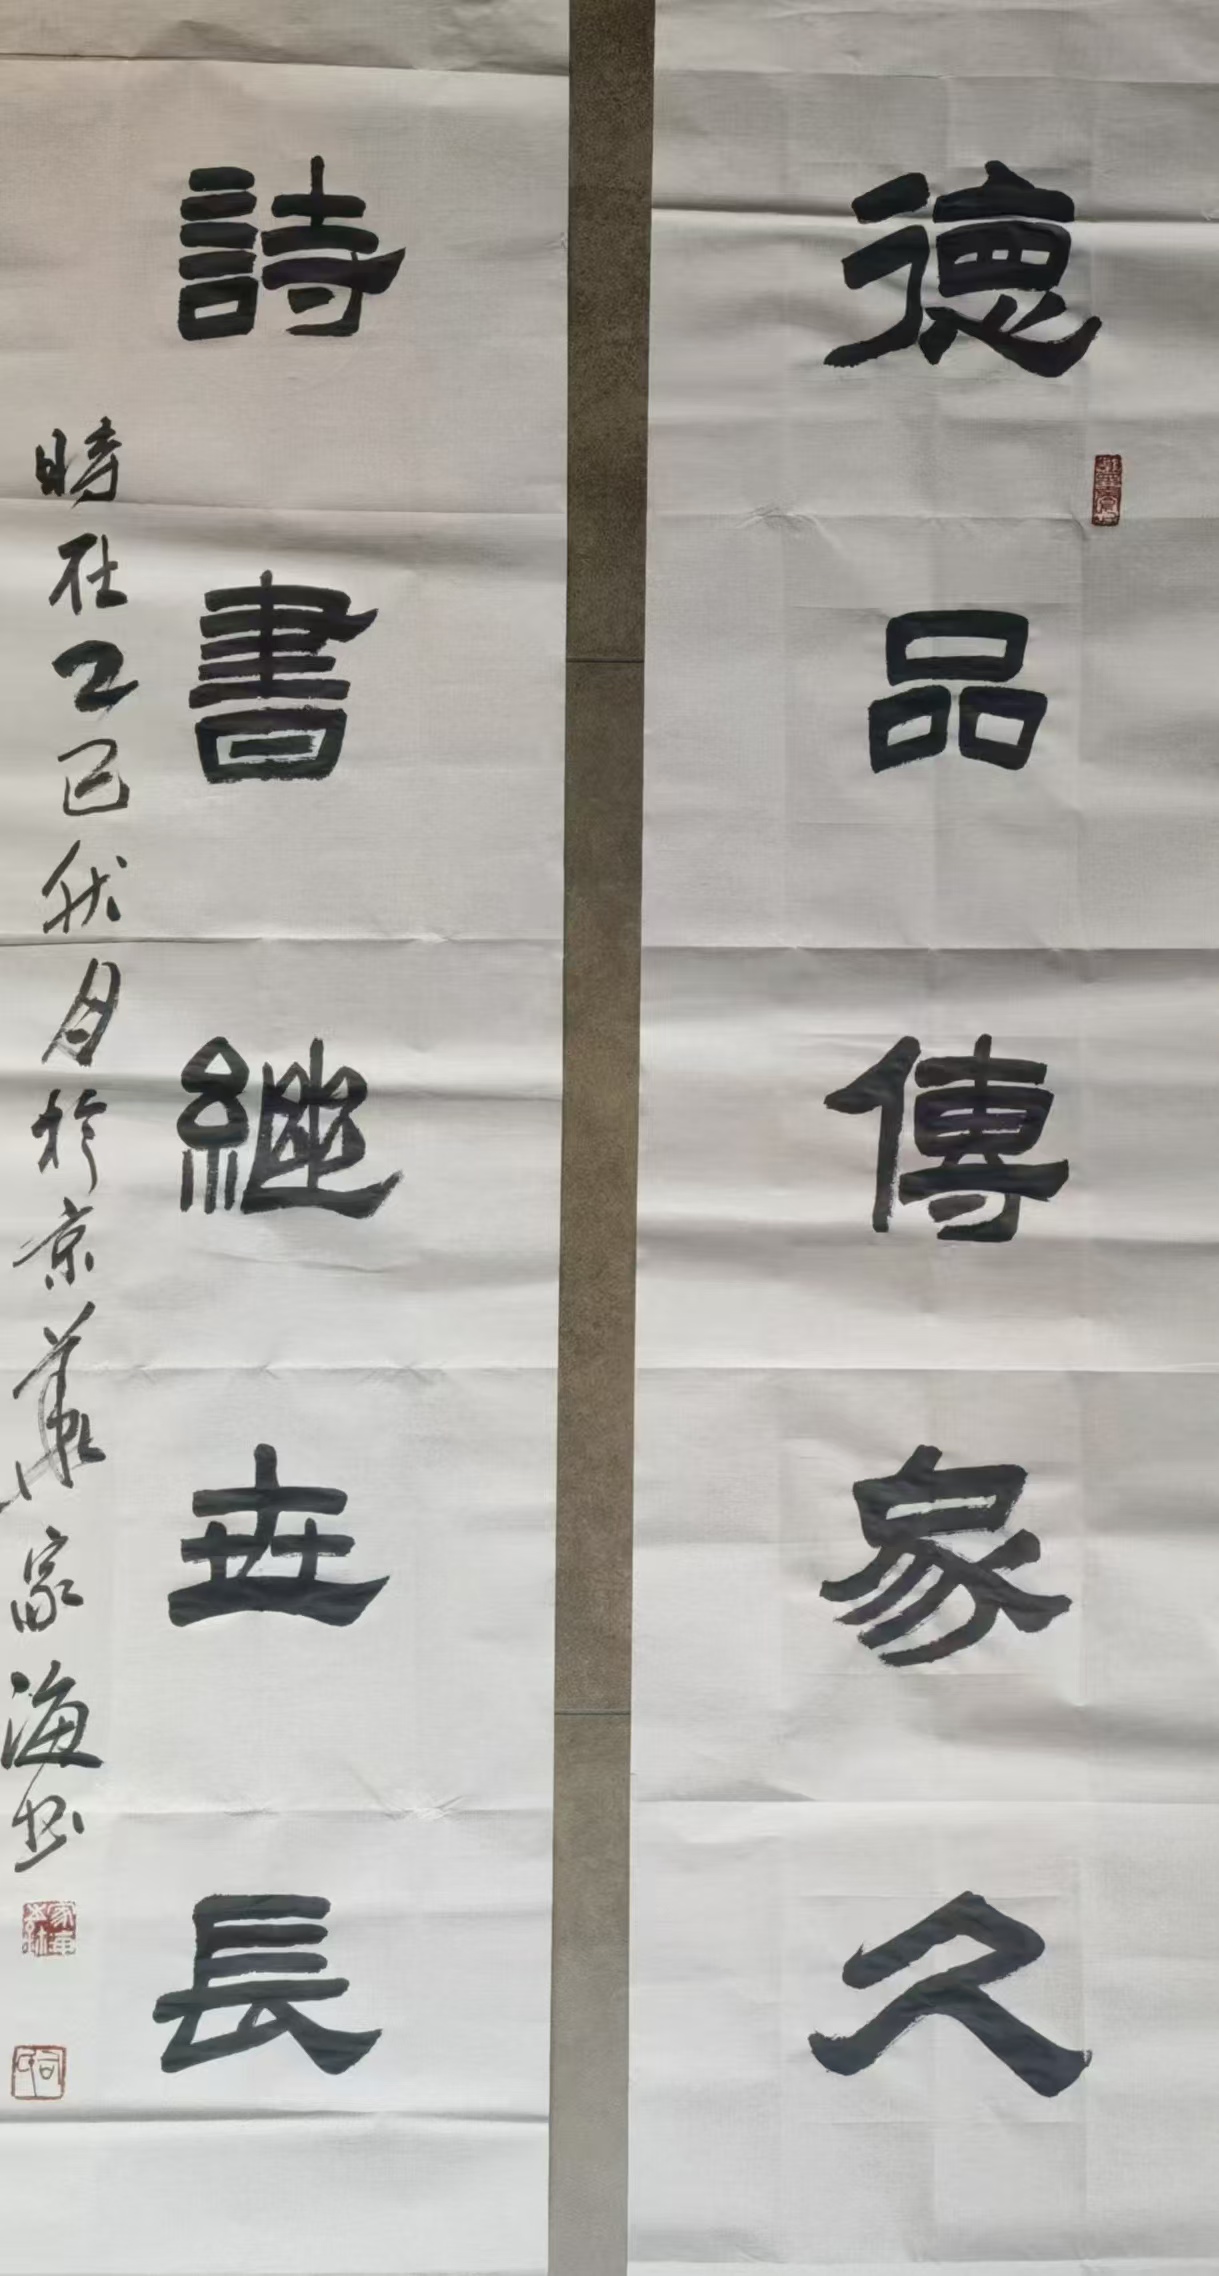 德品傳家久
詩書繼世長
時在乙巳秋月於京華家海书